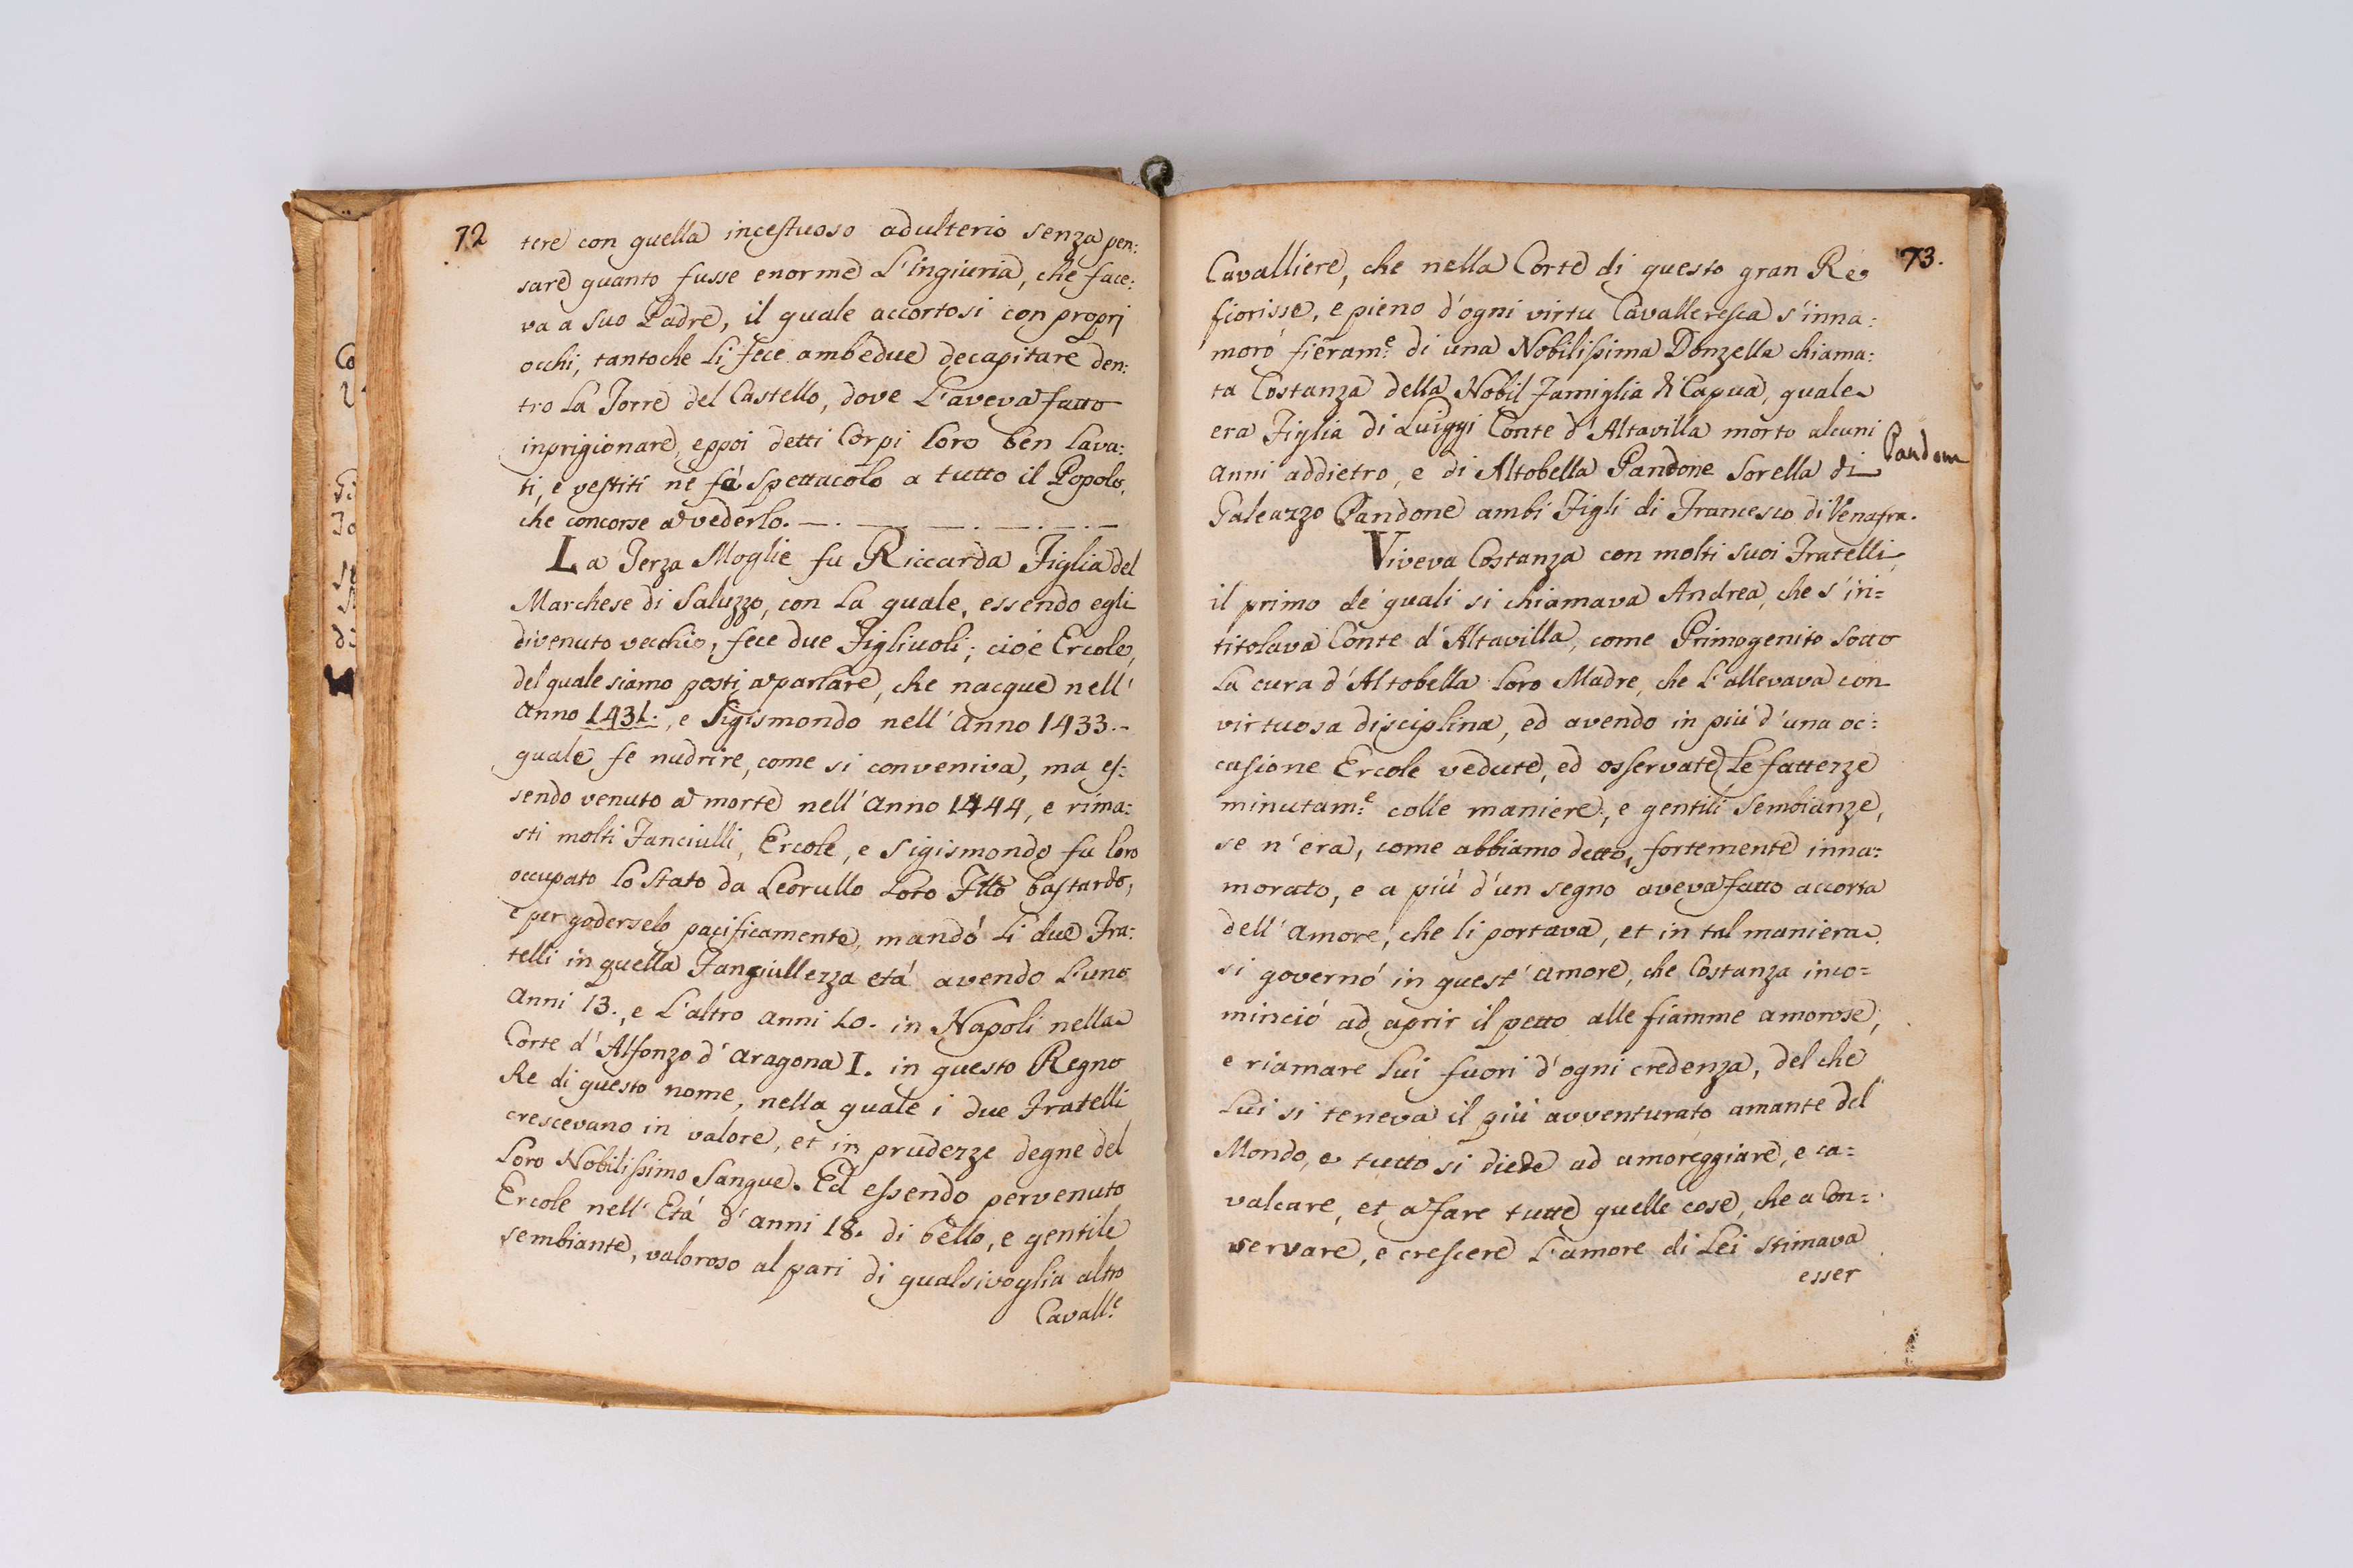 72
tere con quella incestuoso adulterio senza pen:
sare quanto fusse enorme L'ingiuria, che face:
va a suo Padre, il quale accortosi con proprj
occhi, tantoche Li fece ambedue decapitare den:
tro La Torre del Castello, dove L'aveva fatto
inprigionare, eppoi detti Corpi loro ben lava:
ti, e vestiti ne fá spettacolo a tutto il Popolo,
che concorse a vederlo. —. — —. —. —. —
La Terza Moglie fu Riccarda Figlia del
Marchese di Saluzzo, con La quale, essendo egli
divenuto vecchio, fece due Figliuoli; cioé Ercole,
del quale siamo posti a parlare, che nacque nell'
Anno 1431., e Sigismondo nell'Anno 1433.-
quale fe nudrire, come si conveniva, ma es:
sendo venuto a morte nell'Anno 1444, e rima:
sti molti Fanciulli, Ercole, e Sigismondo fu loro
occupato lo Stato da Leorullo Loro Fllo bastardo,
e per goderselo pacificamente, mandó Li due Fra:
telli in quella Fanciullezza etá avendo L'uno
Anni 13., e L'altro anni 10. in Napoli nella
Corte d'Alfonzo d'Aragona I. in questo Regno
Re di questo nome, nella quale i due Fratelli
crescevano in valore, et in prudezze degne del
Loro Nobilissimo Sangue. Ed essendo pervenuto
Ercole nell'Etá d'anni 18. di bello, e gentile
sembiante, valoroso al pari di qualsivoglia altro
Cavall:e
73.
Cavalliere, che nella Corte di questo gran Re
fiorisse, e pieno d'ogni virtu Cavalleresca s'inna:
moró fieram:e di una Nobilissima Donzella chiama:
ta Costanza della Nobil Famiglia di Capua, quale
era Figlia di Luiggi Conte d'Altavilla morto alcuni
Anni addietro, e di Altobella Pandone Sorella di
Pandone
Galeazzo Pandone ambi Figli di Francesco di Venafra.
Viveva Costanza con molti suoi Fratelli,
il primo de' quali si chiamava Andrea, che s'in=
titolava Conte d'Altavilla, come Primogenito sotto
La cura d'Altobella Loro Madre, che L'allevava con
virtuosa disciplina, ed avendo in piú d'una oc:
casione Ercole vedute, ed osservate Le fattezze
minutam:e colle maniere, e gentili Sembianze,
se n'era, come abbiamo detto, fortemente inna:
morato, e a piú d'un segno aveva fatto accorta
dell'Amore, che li portava, et in tal maniera
si governó in quest'Amore, che Costanza inco=
minció ad aprir il petto alle fiamme amorose,
e riamare Lui fuori d'ogni credenza, del che
Lui si teneva il piú avventurato amante del
Mondo, e tutto si diede ad amoreggiare, e ca=
valcare, et a fare tutte quelle cose, che a Con=
servare, e crescere L'amore di Lei stimava
esser